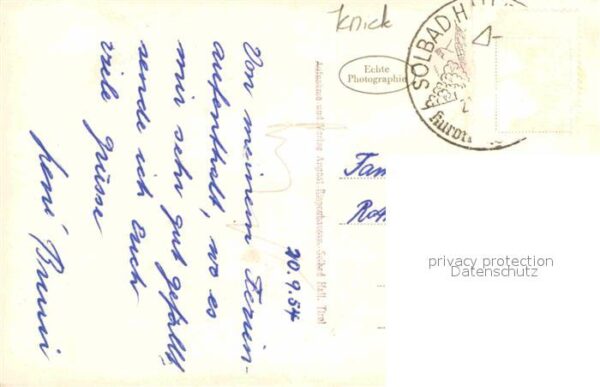 Knick
SOLBAD H
Kuror
Echte
Photographie
Aufnahme und Verlag August Riepenhausen, Solbad Hall, Tirol
20.9.54
Von meinem Ferien-
aufenthalt, wo es
mir sehr gut gefällt,
sende ich Euch
viele Grüsse
Fam
privacy protection
Datenschutz